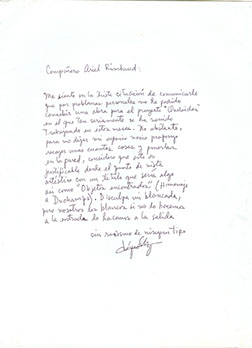 Compañero Ariel Rimbaud:
Me siento en la triste situación de comunicarle
que por problemas personales no he podido
concebir una obra para el proyecto
en el que tan seriamente se ha venido
trabajando en estos meses. No obstante,
para no dejar mi espacio vacío propongo
recoger unas cuantas cosas y ponerlas
en la pared, considero que esto es
justificable desde el punto de vista
artístico con un título que sería algo
así como "Objetos encontrados" (Homenaje
a Duchamp). Disculpa mi blancada,
pero nosotros los blancos si no lo hacemos
a la entrada lo hacemos a la salida
sin racismo de ningún tipo